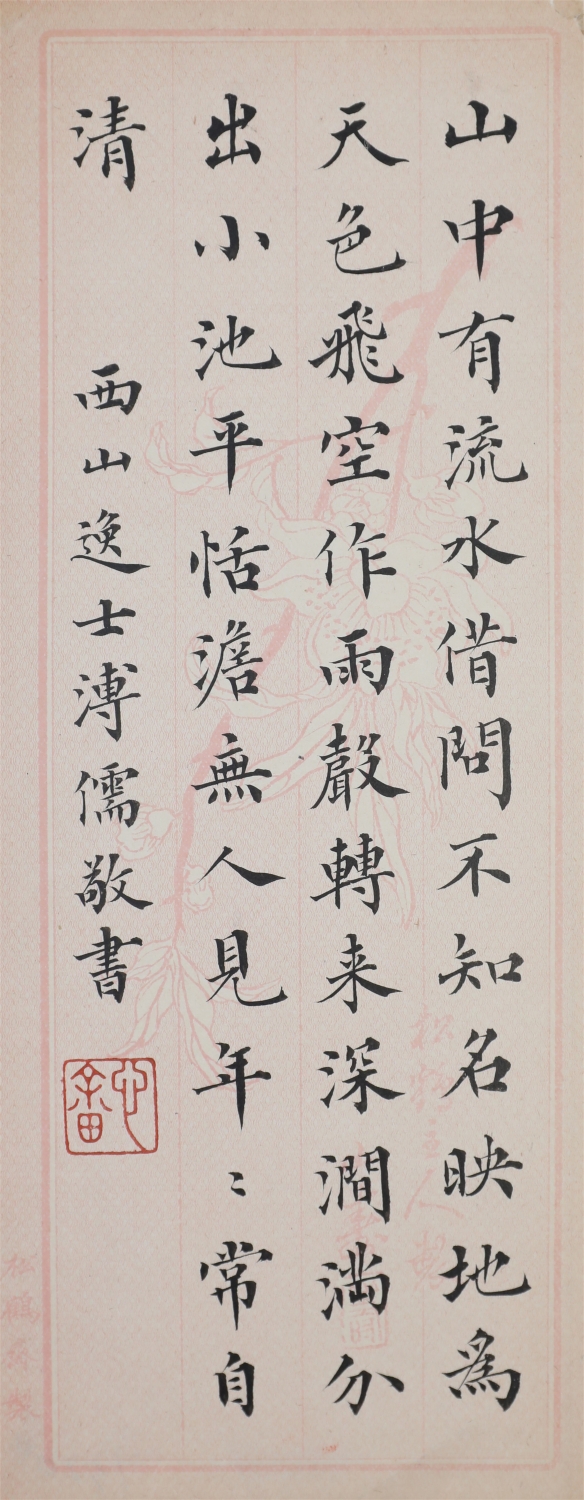 山中有流水借問不知名映地為
天色飛空作雨聲轉来深澗满分
出小池平恬澹無人見年〻常自
清
西山逸士溥儒敬書
心畬